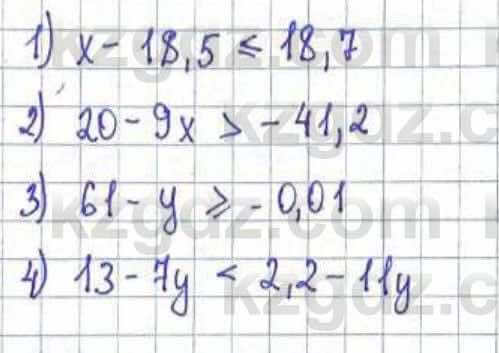 1) x - 18,5 ≤ 18,7
2) 20 - 9x > - 41,2
3) 61 - y ≥ - 0,01
4) 13 - 7y < 2,2 - 11y